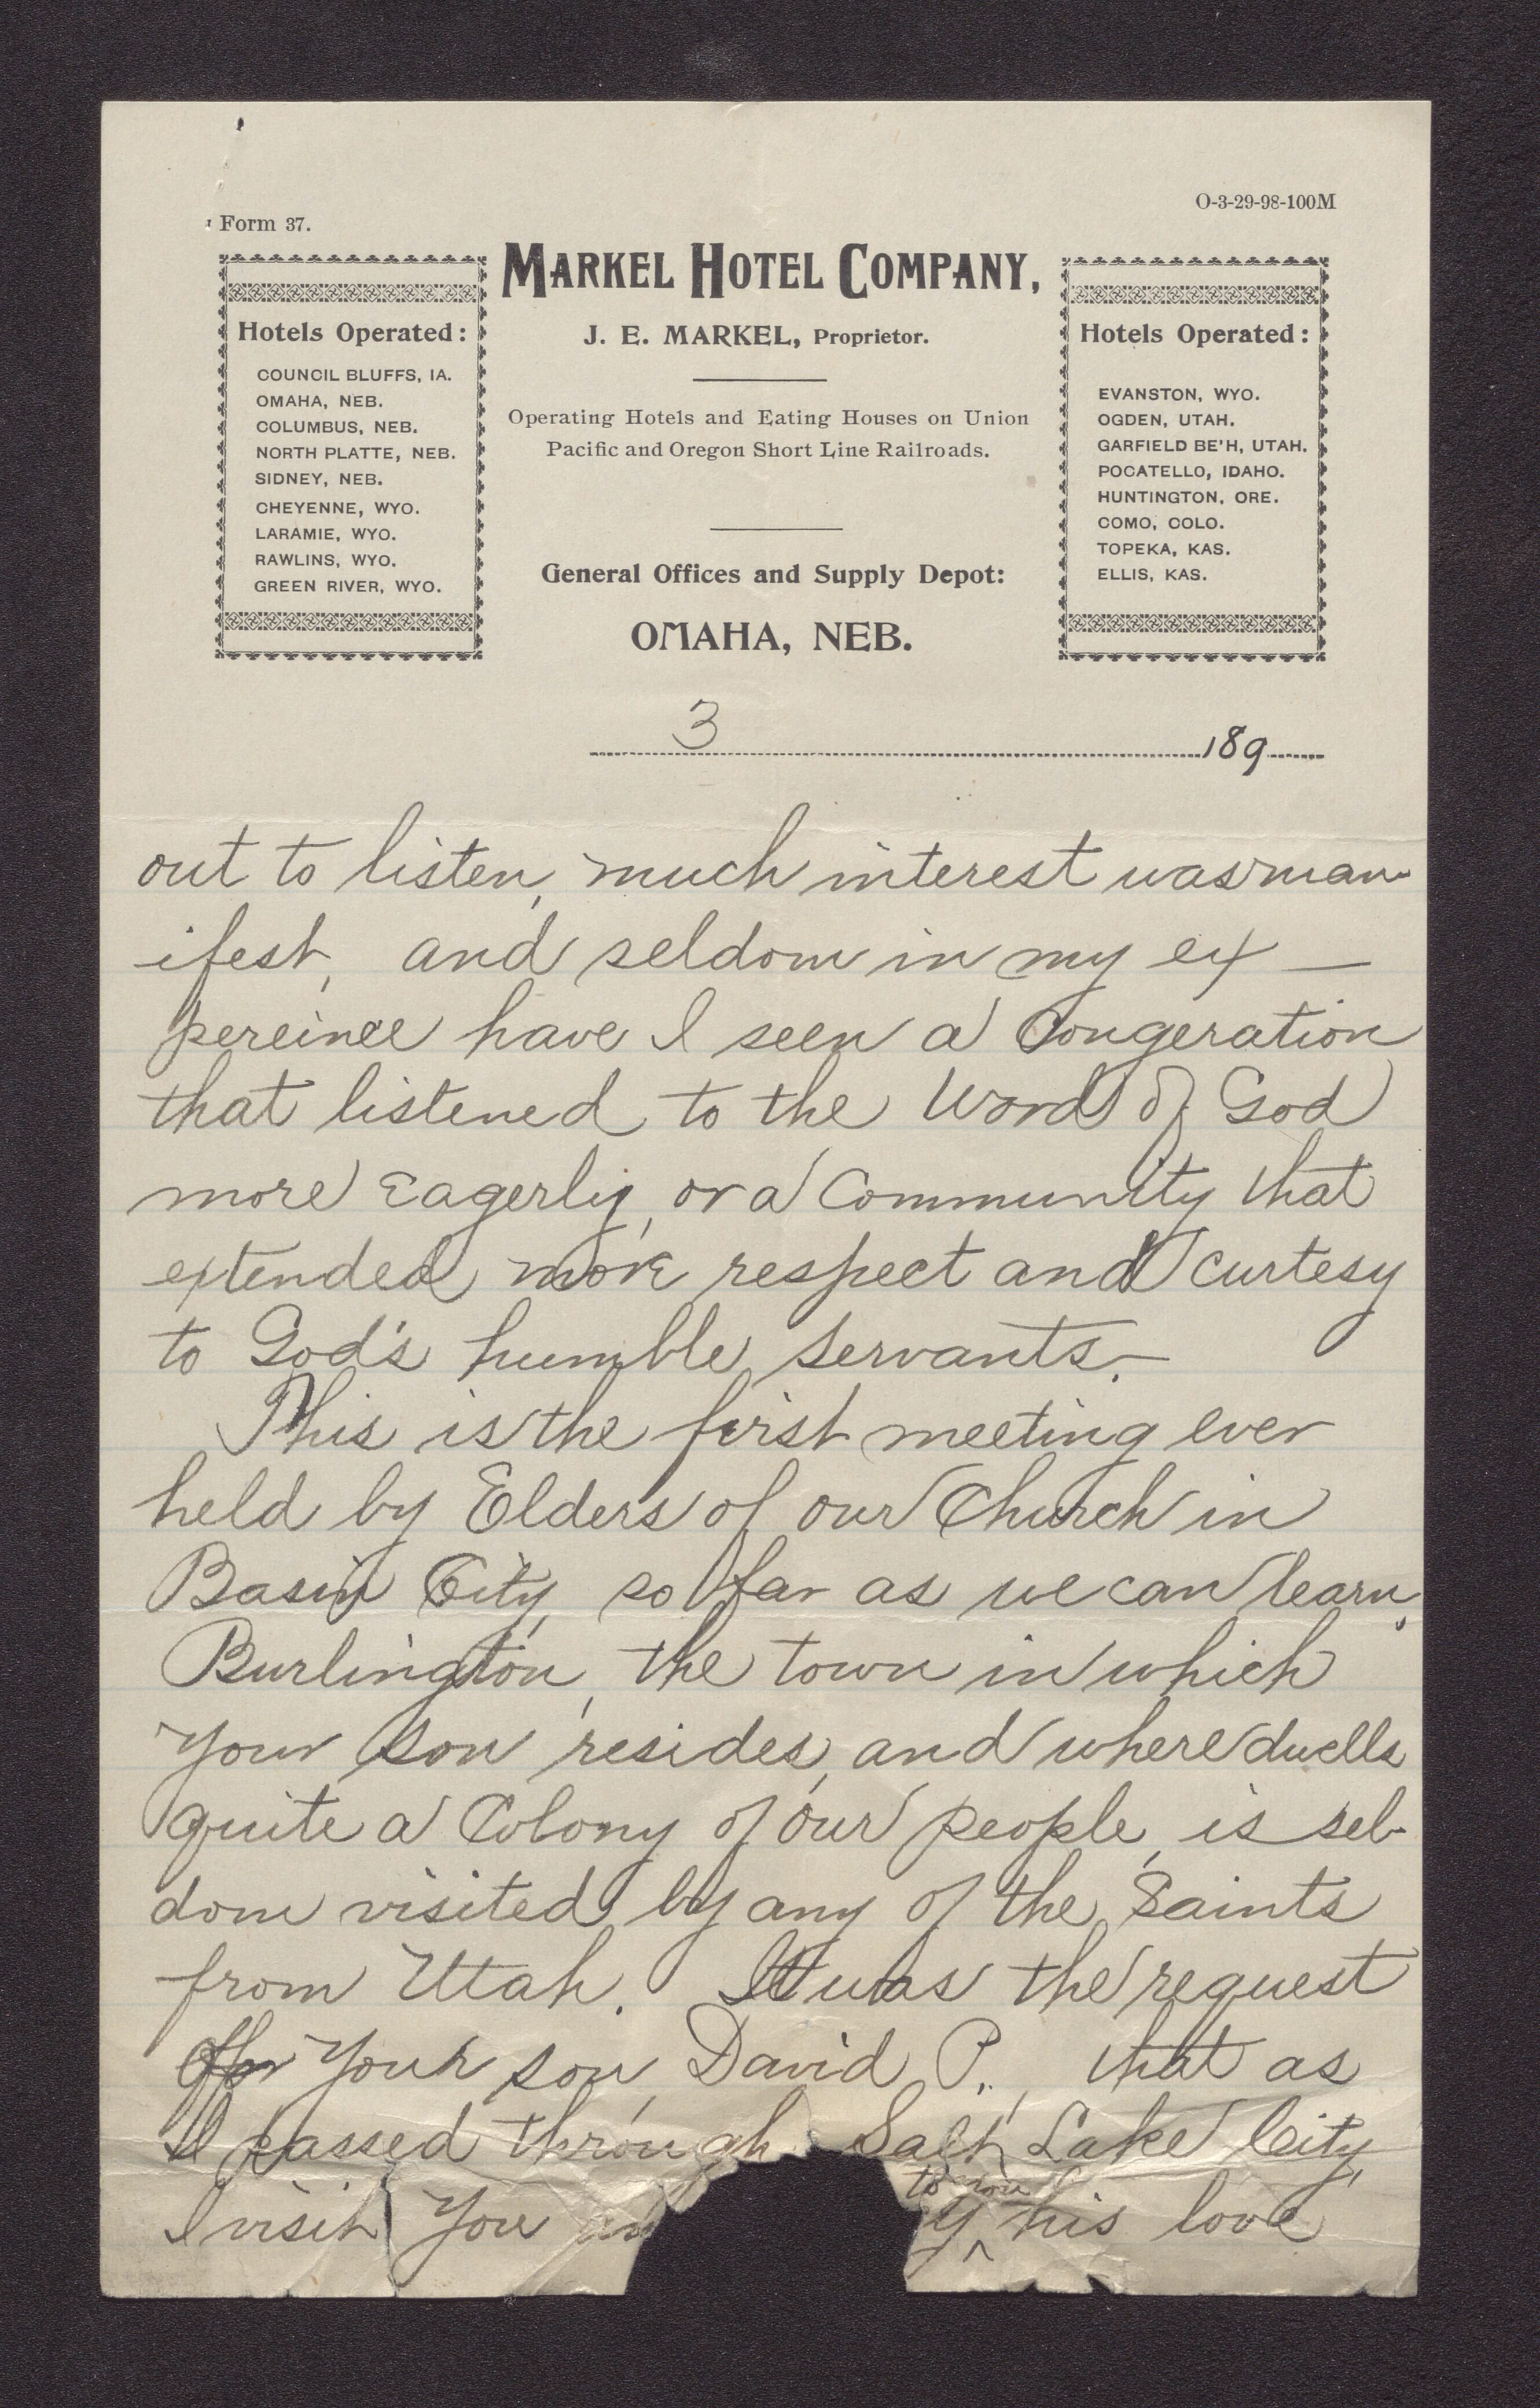 O-3-29-98-100M
Form 37.
MARKEL HOTEL COMPANY,
J. E. MARKEL, Proprietor.
Operating Hotels and Eating Houses on Union
Pacific and Oregon Short Line Railroads.
General Offices and Supply Depot:
OMAHA, NEB.
Hotels Operated:
COUNCIL BLUFFS, IA.
OMAHA, NEB.
COLUMBUS, NEB.
NORTH PLATTE, NEB.
SIDNEY, NEB.
CHEYENNE, WYO.
LARAMIE, WYO.
RAWLINS, WYO.
GREEN RIVER, WYO.
Hotels Operated:
EVANSTON, WYO.
OGDEN, UTAH.
GARFIELD BE'H, UTAH.
POCATELLO, IDAHO.
HUNTINGTON, ORE.
COMO, COLO.
TOPEKA, KAS.
ELLIS, KAS.
3 189
out to listen, much interest was man-
ifest, and seldom in my ex-
pereince have I seen a Congeration
that listened to the Word of God
more Eagerly, or a Community that
extended more respect and curtesy
to God's humble servants.
This is the first meeting ever
held by Elders of our Church in
Basin City, so far as we can learn.
Burlington, the town in which
Your son resides, and where dwells
quite a Colony of our people, is sel-
dom visited by any of the Saints
from Utah. It was the request
of Your son, David P., that as
I passed through Salt Lake City,
I visit You
to you
his love